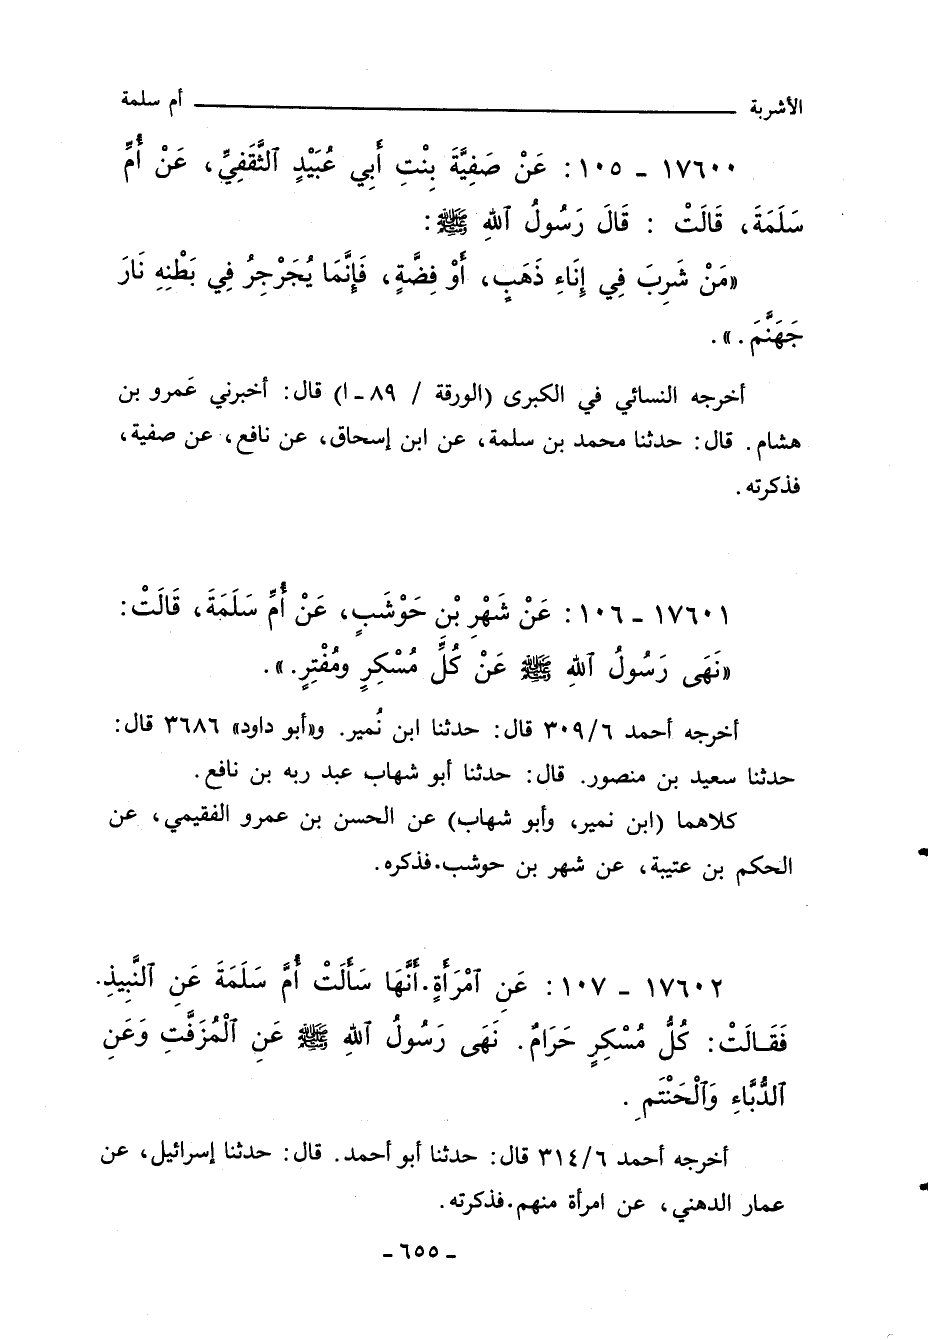 الأشربة ــــــــــــــ أم سلمة
١٧٦٠٠ ـ ١٠٥: عَنْ صَفِيَّةَ بِنْتِ أَبِي عُبَيْدٍ ٱلثَّقَفِيِّ، عَنْ أُمِّ
سَلَمَةَ، قَالَتْ : قَالَ رَسُولُ ٱللهِ ﷺ:
«مَنْ شَرِبَ فِي إِنَاءِ ذَهَبٍ، أَوْ فِضَّةٍ، فَإِنَّمَا يُجَرْجِرُ فِي بَطْنِهِ نَارَ
جَهَنَّمَ.».
أخرجه النسائي في الكبرى (الورقة / ٨٩ـ ا) قال: أخبرني عَمرو بن
هشام. قال: حدثنا محمد بن سلمة، عن ابن إسحاق، عن نافع، عن صفية،
فذكرته.
١٧٦٠١ ـ ١٠٦: عَنْ شَهْرِ بْنِ حَوْشَبٍ، عَنْ أُمِّ سَلَمَةَ، قَالَتْ:
«نَهَى رَسُولُ ٱللهِ ﷺ عَنْ كُلِّ مُسْكِرٍ ومُفْتِرٍ.».
أخرجه أحمد ٣٠٩/٦ قال: حدثنا ابن نُمير. و«أبو داود» ٣٦٨٦ قال:
حدثنا سعيد بن منصور. قال: حدثنا أبو شهاب عبد ربه بن نافع.
كلاهما (ابن نمير، وأبو شهاب) عن الحسن بن عمرو الفقيمي، عن
الحكم بن عتيبة، عن شهر بن حوشب.فذكره.
١٧٦٠٢ ـ ١٠٧: عَنِ ٱمْرَأَةٍ.أَنَّهَا سَأَلَتْ أُمَّ سَلَمَةَ عَنِ ٱلنَّبِيذِ.
فَقَالَتْ: كُلُّ مُسْكِرٍ حَرَامٌ. نَهَى رَسُولُ ٱللهِ ﷺ عَنِ ٱلْمُزَفَّتِ وَعَنِ
ٱلدُّبَّاءِ وَٱلْحَنْتَمِ.
أخرجه أحمد ٣١٤/٦ قال: حدثنا أبو أحمد. قال: حدثنا إسرائيل، عن
عمار الدهني، عن امرأة منهم.فذكرته.
ـ ٦٥٥ ـ